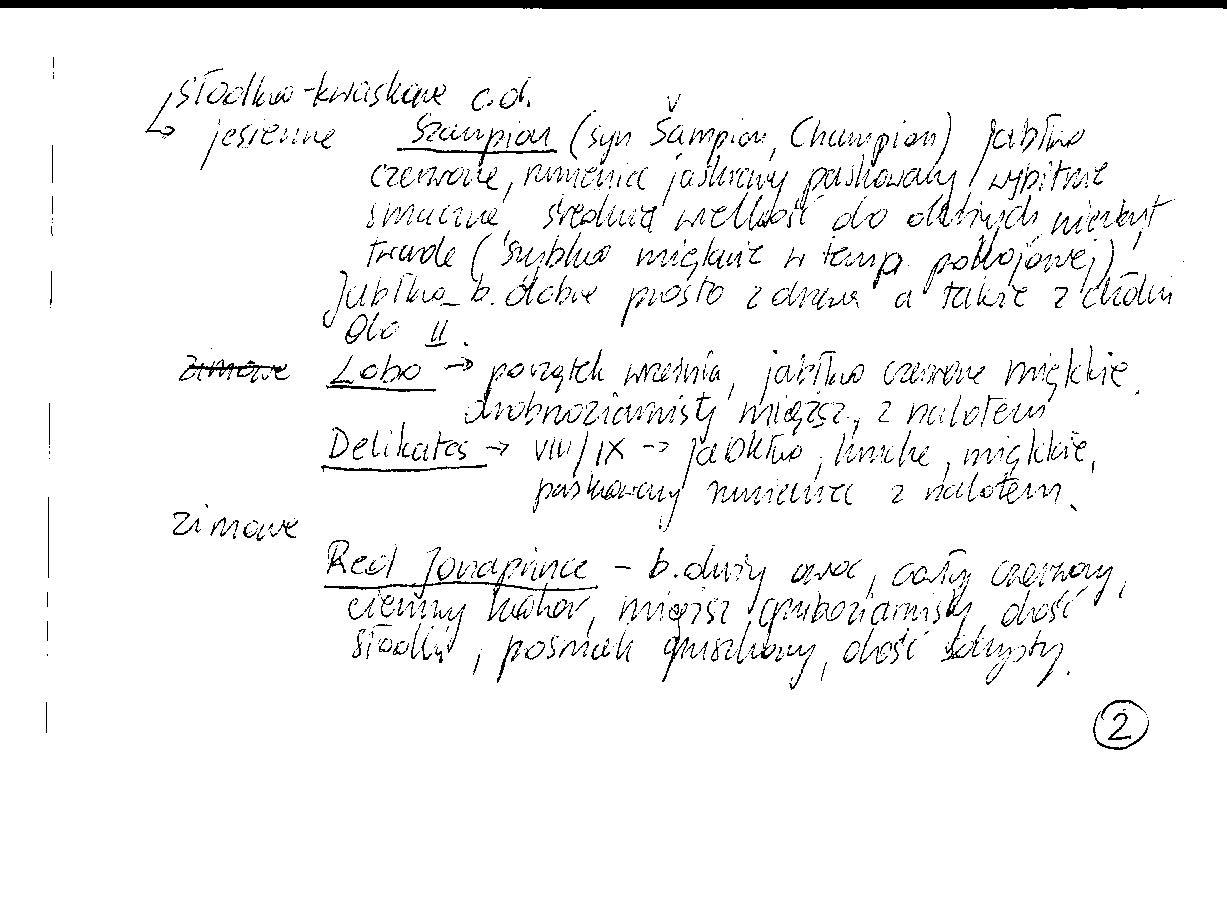 słodko-kwaskowe c.d.
↳ jesienne Szampion (syn Šampion, Champion) jabłko
czerwone, rumieniec jaskrawy paskowany, wybitnie
smaczne, średnia wielkość do dużych, niezbyt
twarde (szybko mięknie w temp pokojowej)
Jabłko b. dobre prosto z drzewa a także z chłodni
do II.
zimowe Lobo → początek września, jabłko czerwone miękkie.
drobnoziarnisty miąższ, z nalotem
Delikates → VIII/IX → jabłko, kruche, miękkie,
paskowany rumieniec z nalotem.
zimowe
Red Jonaprince – b. duży owoc, cały czerwony,
ciemny kolor, miąższ gruboziarnisty, dość
słodki, posmak gruszkowy, dość soczysty.
2